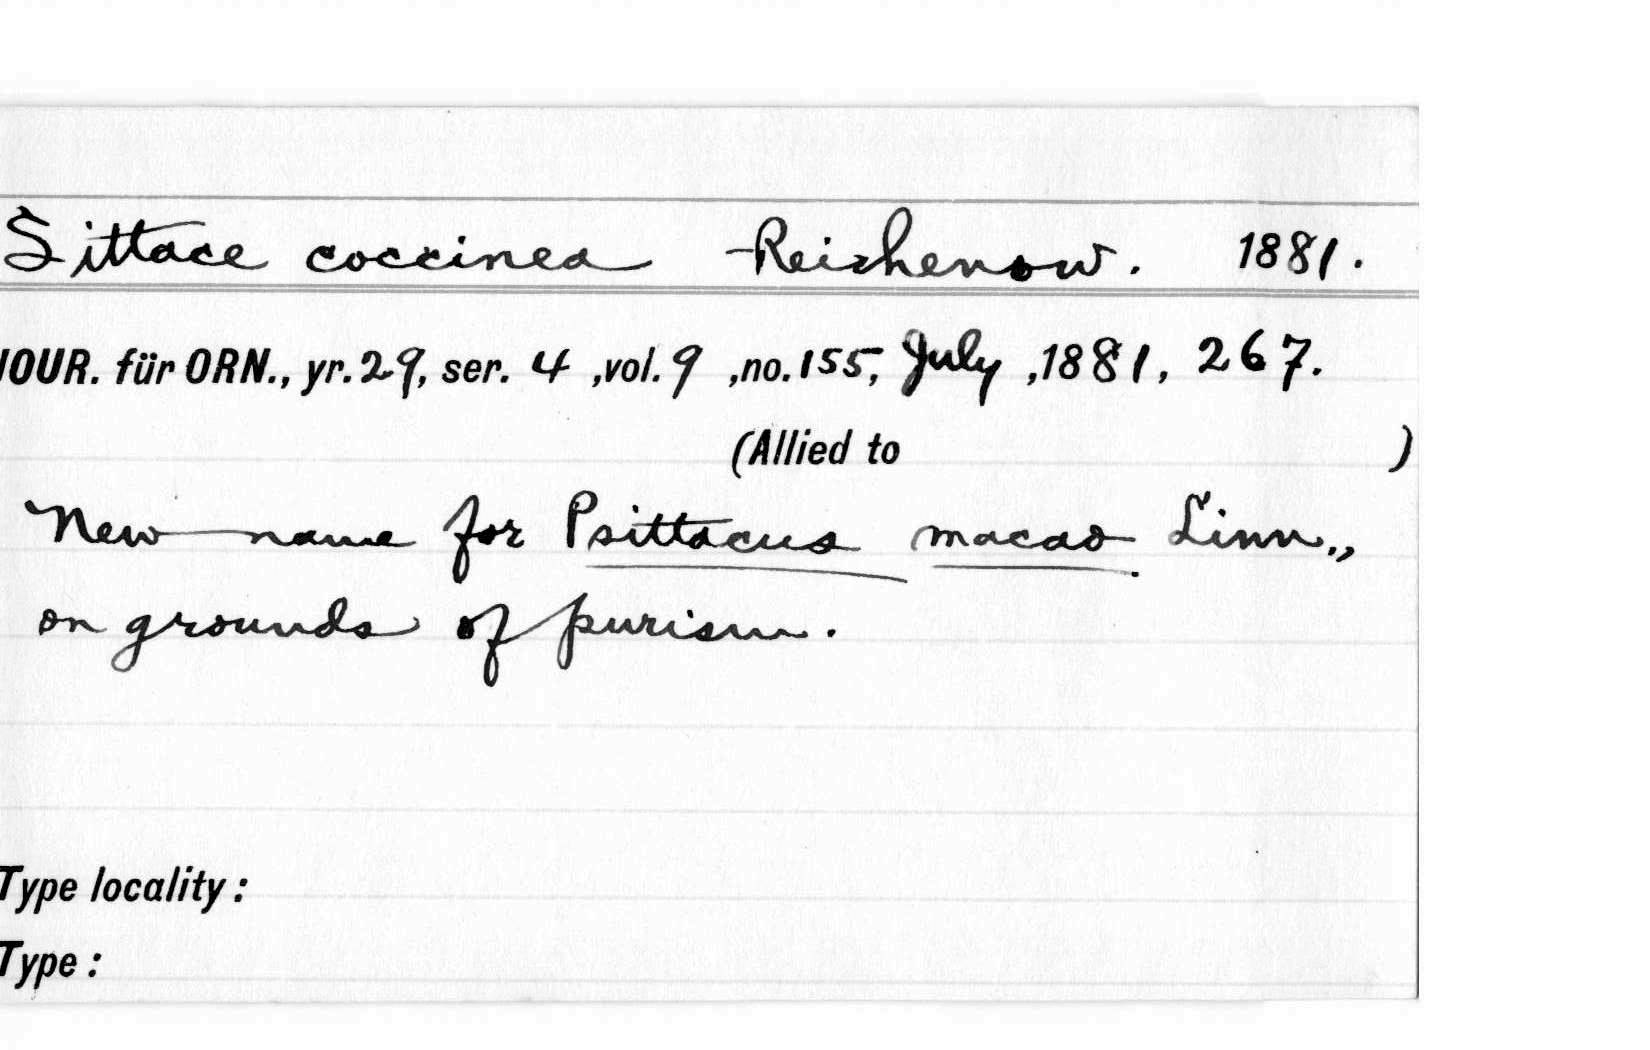 Sittace coccinea Reichenow. 1881.
JOUR. für ORN., yr. 29, ser. 4 ,vol. 9 ,no. 155, July ,1881, 267.
(Allied to )
New name for Psittacus macao Linn.,
on grounds of purism.
Type locality :
Type :